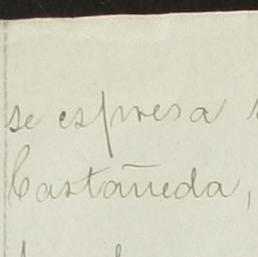 se espresa
Castañeda,